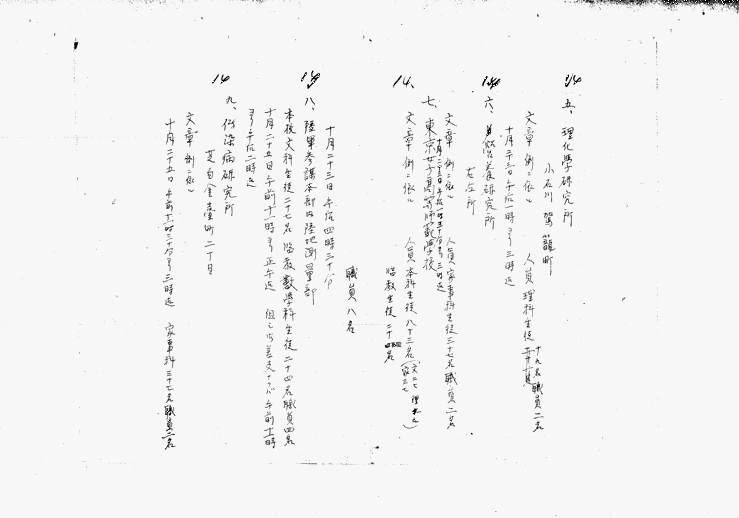 14
五、理化學研究所
小石川 駕籠町
文章 例ニ依ル 人員 理科生徒 十九名 職員二名
十月二十三日午后一時ヨリ三時迄
14
六、營養研究所
在左所
文章 例ニ依ル 人員 家事科生徒三十七名 職員二名
十月二十三日午后一時三十分ヨリ三時迄
14、
七、東京女子高等師範學校
文章 例ニ依ル 人員 本科生徒 八十三名(文二七 理一九 家三七)
臨教生徒 二十四名
職員八名
十月二十三日午后四時三十分
14
八、陸軍參謀本部内陸地測量部
本校文科生徒二十七名 臨教數學科生徒二十四名 職員四名
十月二十五日午前十一時ヨリ正午迄 但シ御差支ナラバ午前十時
ヨリ午后二時迄
14
九、伝染病研究所
芝白金臺町二丁目
文章 例ニ依ル
十月二十五日 午前十一時三十分ヨリ三時迄 家事科三十七名 職員二名